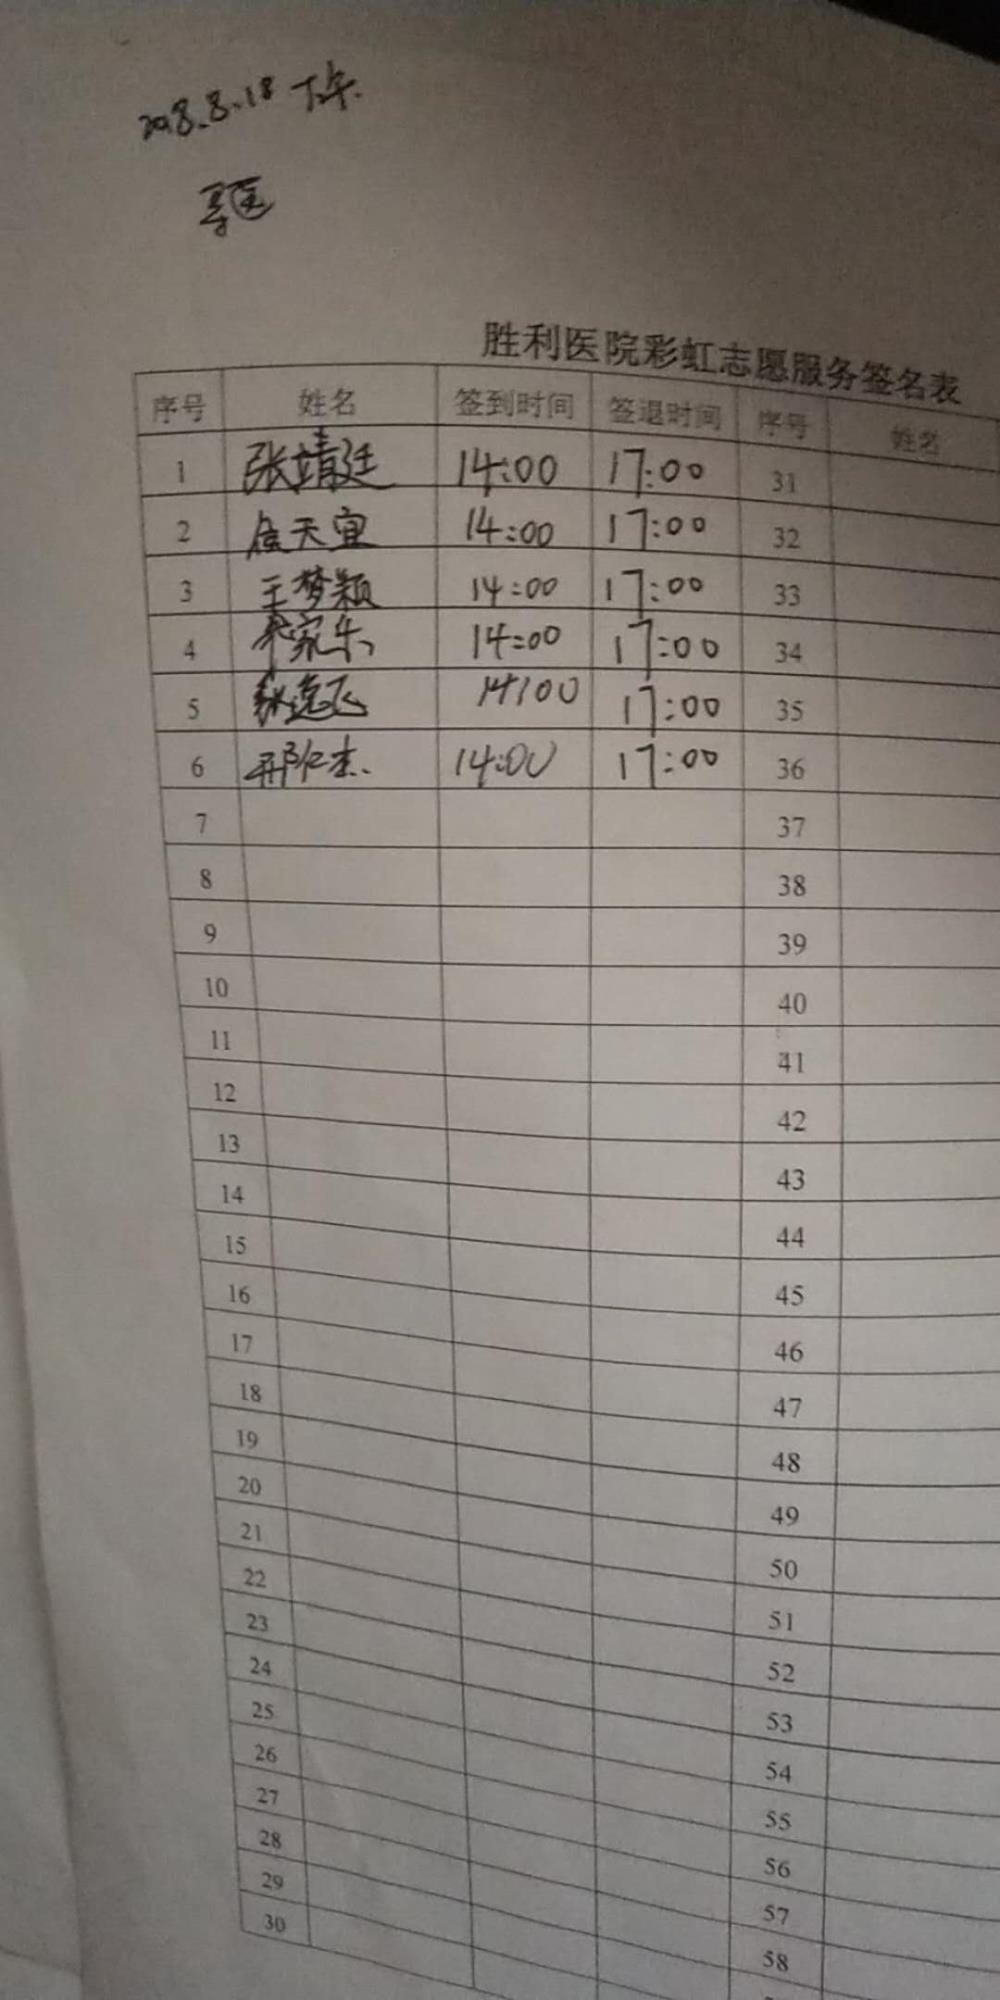 2018.8.18 下午.
导医
胜利医院彩虹志愿服务签名表
序号 姓名 签到时间 签退时间 序号 姓名
1 张靖廷 14:00 17:00 31
2 天宜 14:00 17:00 32
3 王梦颖 14:00 17:00 33
4 家乐 14:00 17:00 34
5 逸飞 14:00 17:00 35
6 邢仁杰. 14:00 17:00 36
7 37
8 38
9 39
10 40
11 41
12 42
13 43
14 44
15 45
16 46
17 47
18 48
19 49
20 50
21 51
22 52
23 53
24 54
25 55
26 56
27 57
28 58
29
30